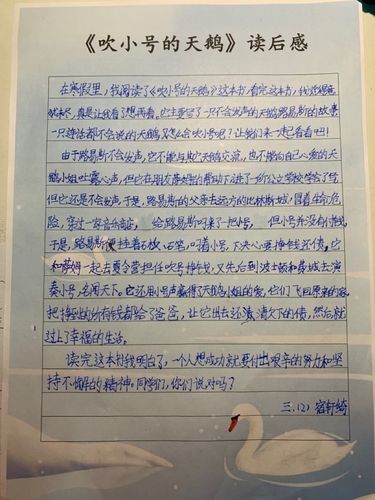 《吹小号的天鹅》读后感
在寒假里，我阅读了《吹小号的天鹅》这本书，看完这本书，我还意犹
未尽，真是让我看了想再看。它主要写了一只不会发声的天鹅路易斯的故事，
一只连话都不会说的天鹅，又怎么会吹小号呢？让我们来一起看看吧！
由于路易斯不会发声，它不能与其它天鹅交流，也不能向自己心爱的天
鹅小姐吐露心声，但它在朋友的帮助下进了一所公立学校学会了写
但它还是不会发声。于是，路易斯的父亲去远方的比林斯城，冒着生命危
险，穿过一家音乐商店，给路易斯叼来了一把小号，但小号并没有付钱，
于是，路易斯便挂着石板、石笔，叼着小号，下决心要挣钱还债。它
和萨姆一起去夏令营担任吹号挣钱，又先后到波士顿和费城去演
奏小号，名闻天下。它还用小号声赢得了天鹅小姐的爱，它们飞回原来的家，
把挣到的所有钱都给了爸爸，让它出去还清欠下的债，然后就
过上了幸福的生活。
读完这本书我明白了，一个人想成功就要付出艰辛的努力和坚
持不懈的精神。同学们，你们说对吗？
三.(2) 宿轩绮